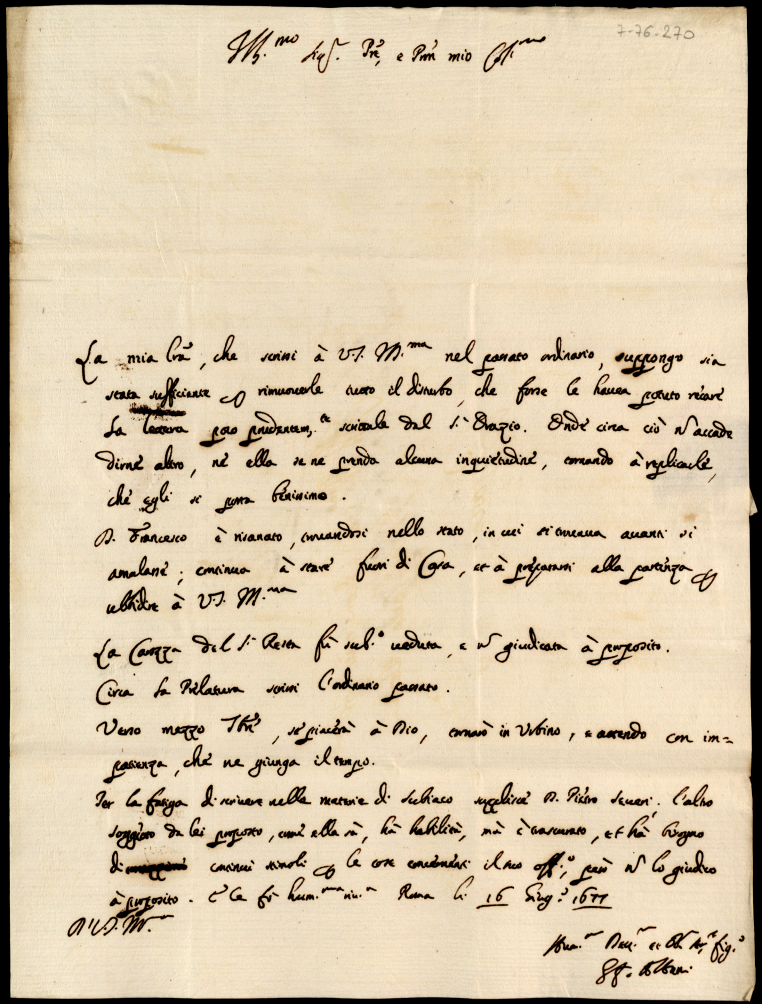 7-76-270
Ill.mo Sig.r Prẽ, e Prõn mio Col.mo
La mia lrã, che scrissi à V.S. Ill.ma nel passato ordinario, suppongo sia
stata sufficiente p rimuoverle tutto il disturbo, che forse le havea potuto recare
la lettera poco prudentem.te scrittale dal S.r Orazio. Onde circa ciò nõ accade
dirne altro, nè ella se ne prenda alcuna inquietudine, tornando à replicarle,
che egli si porta benissimo.
D. Francesco è risanato, trovandosi nello stato, in cui si trovava avanti si
amalasse; continua à stare fuori di Casa, et à prepararsi alla partenza p
ubbidire à V.S. Ill.ma
La Carozza del S.r Resta fù sub.o veduta, e nõ giudicata à proposito.
Circa la Prelatura scrissi l'ordinario passato.
Verso mezzo 7bre, se piacerà à Dio, tornarò in Urbino, e attendo con im=
pazienza, che ne giunga il tempo.
Per la fatiga di scrivere nelle materie di Subiaco supplisce D. Pietro Severi. l'altro
soggetto da lei proposto, come ella sà, hà habilità, mà è trascurato, et hà bisogno
di continui stimoli p le cose concernenti il suo off.o, però nõ lo giudico
à proposito. E le fò hum.ma riu.a Roma li 16 Giug.o 1677
D. V.S. Ill.ma
Hum.mo Dev.mo et Obl.mo fig.o
Albani